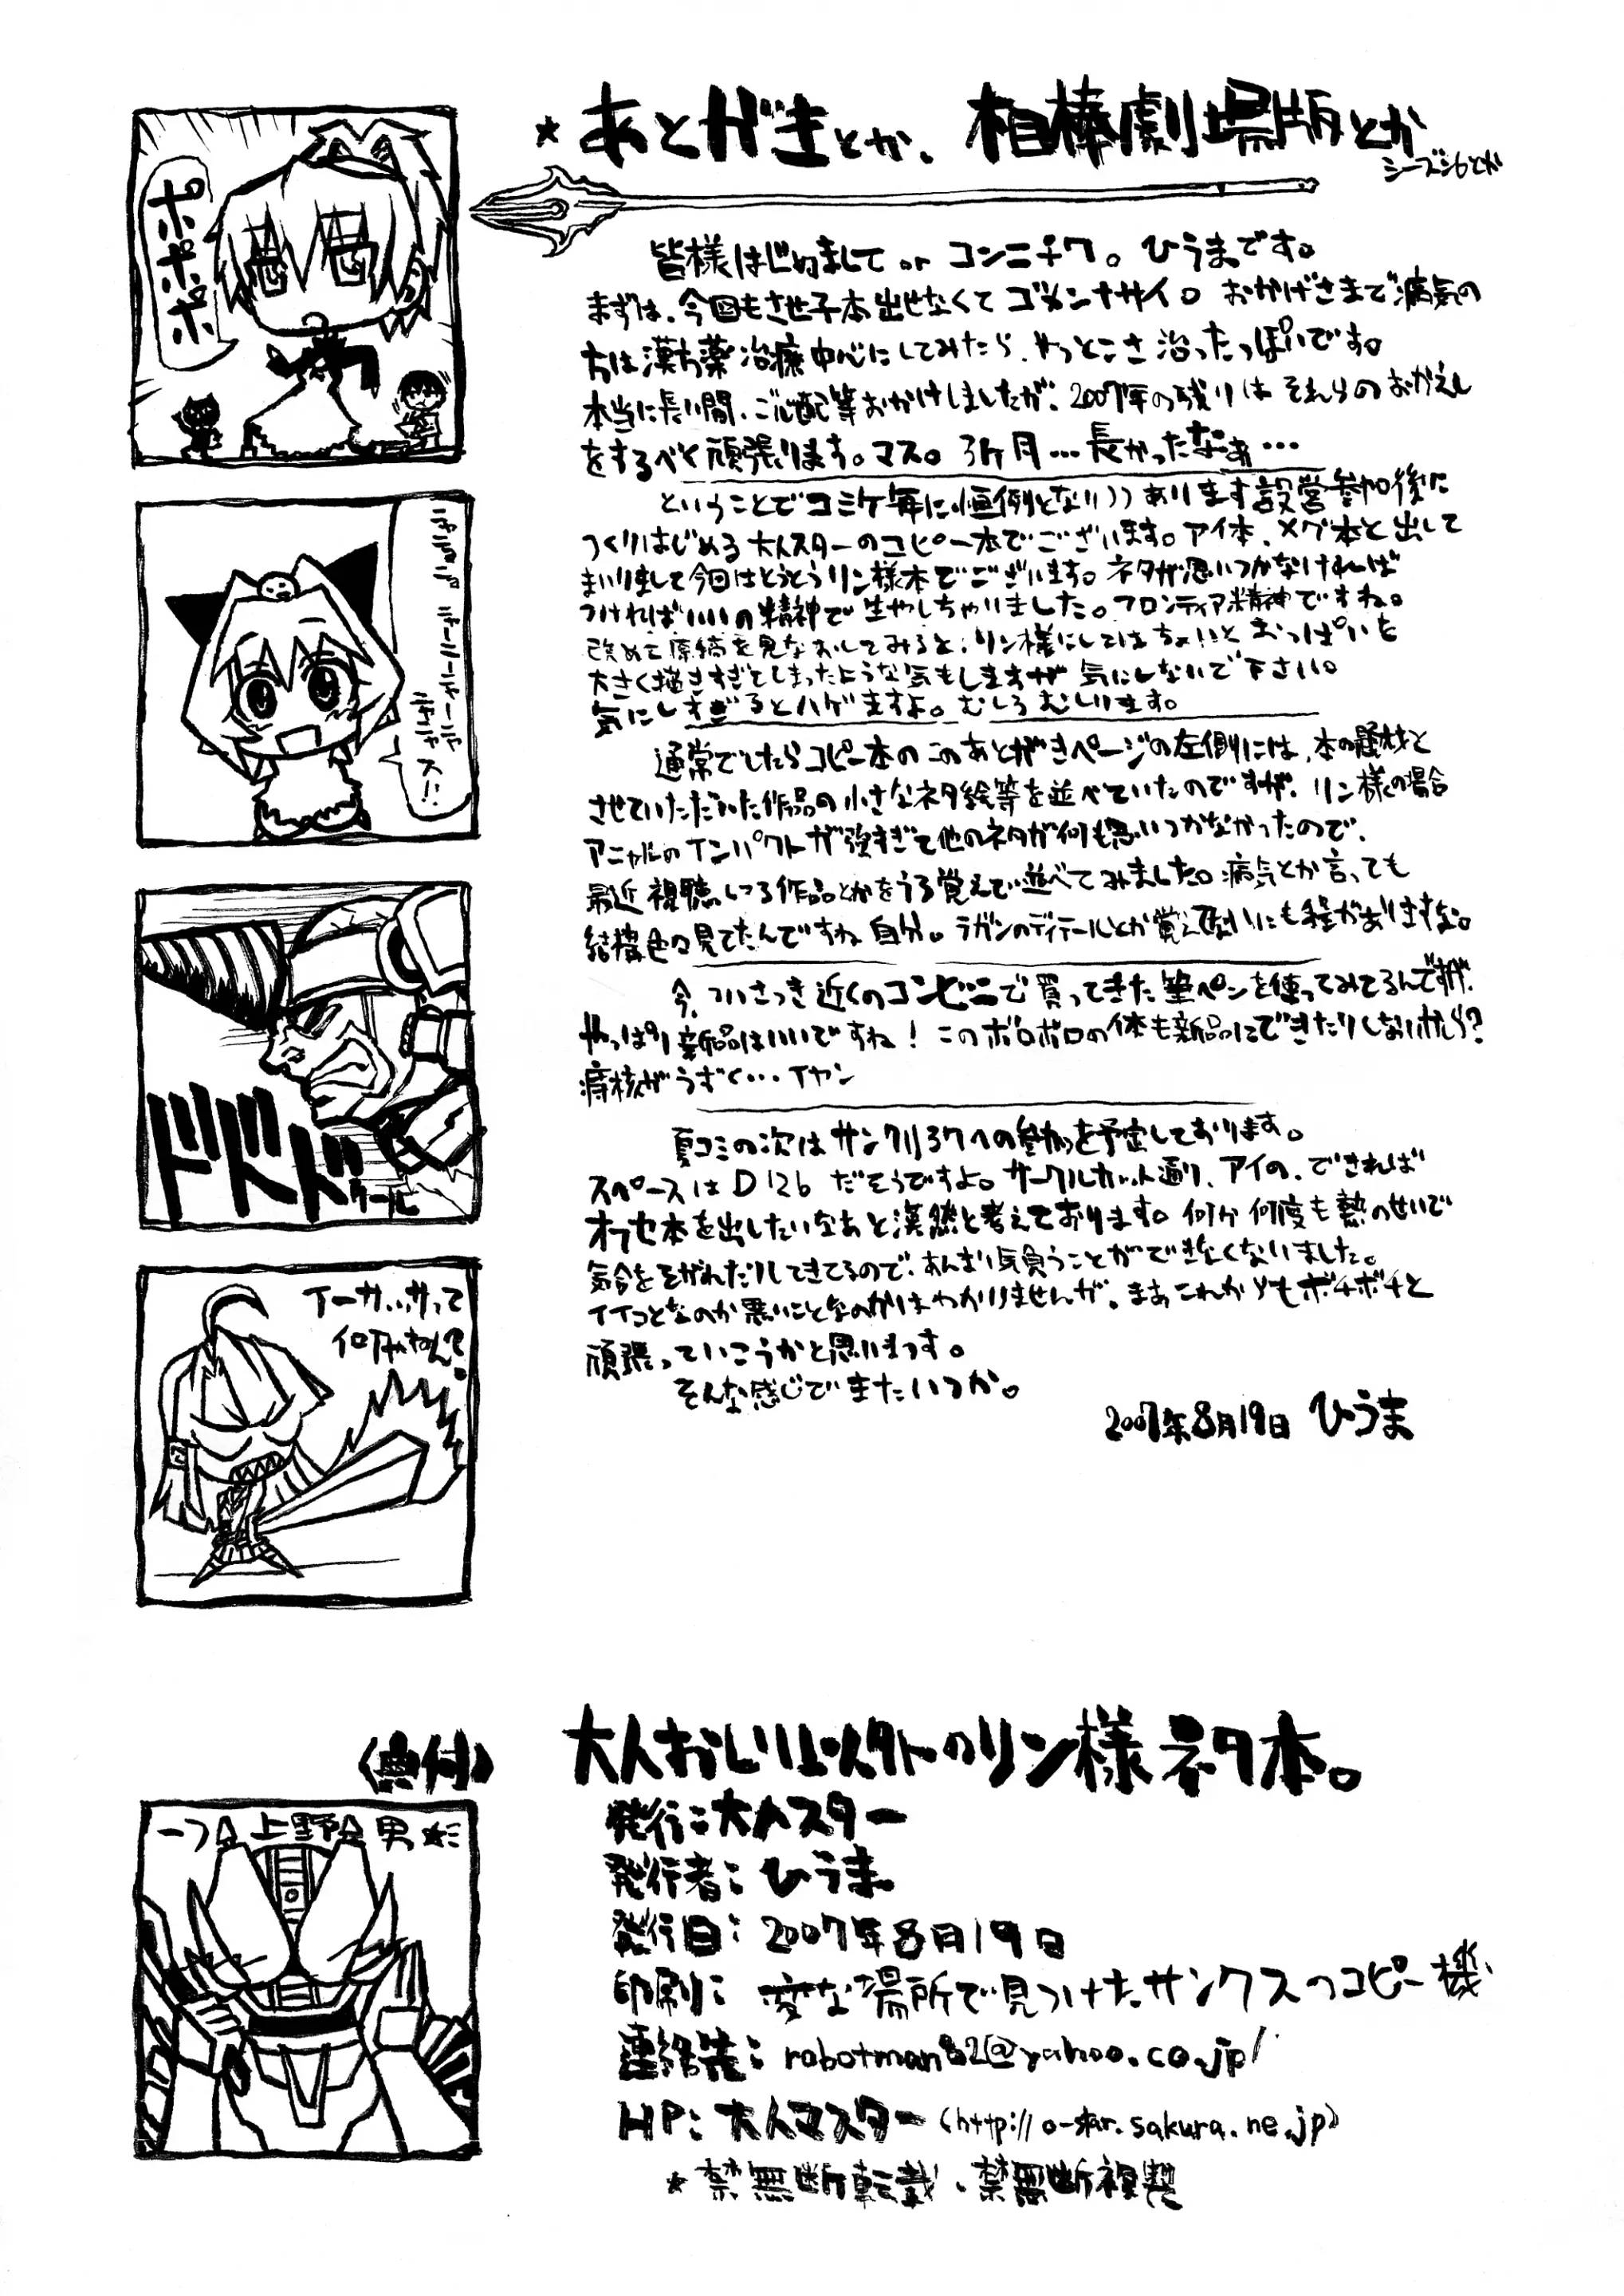 ★あとがきとか、相棒劇場版とか
シーズン6とか
皆様はじめまして or コンニチワ。ひうまです。
まずは、今回もさせ子本出せなくてゴメンナサイ。おかげさまで病気の
方は漢方薬治療中心にしてみたら、やっとこさ治ったっぽいです。
本当に長い間、ご心配等おかけしましたが、2007年の残りはそれらのおかえし
をするべく頑張ります。マス。3ヶ月…長かったなぁ…
ということでコミケ毎に恒例となりつつあります設営参加後に
つくりはじめる大人スターのコピー本でございます。アイ本、メグ本と出して
まいりまして今回はとうとうリン様本でございます。ネタが思いつかなければ
つければいいの精神で生やしちゃいました。フロンティア精神ですね。
改めて原稿を見なおしてみると、リン様にしてはちょいとおっぱいを
大きく描きすぎてしまったような気もしますが気にしないで下さい。
気にしすぎるとハゲますよ。むしろむしります。
通常でしたらコピー本のこのあとがきページの左側には、本の題材と
させていただいた作品の小さなネタ絵等を並べていたのですが、リン様の場合
アニャルのインパクトが強すぎて他のネタが何も思いつかなかったので、
最近視聴しつる作品とかをうる覚えで並べてみました。病気とか言っても
結構色々見てたんですね自分。ラガンのディテールとか覚え違いにも程がありますな。
今、ついさっき近くのコンビニで買ってきた筆ペンを使ってみてるんですが、
やっぱり新品はいいですね！このボロボロの体も新品にできたりしないかしら?
痔核がうずく…イヤン
夏コミの次はサンクリ37への参加を予定しております。
スペースはD12bだそうですよ。サークルカット通り、アイの、できれば
オフセ本を出したいなあと漠然と考えております。何か何度も熱のせいで
気合をそがれたりしてきてるので、あんまり気負うことができなくなりました。
イイコトなのか悪いことなのかはわかりませんが、まあこれからもボチボチと
頑張っていこうかと思います。
そんな感じでまたいつか。
2007年8月19日 ひうま
ポポポポ
ドドド
イーサ…サって
何やねん?
〈奥付〉
上野 男
大人おしりは以外のリン様ネタ本。
発行：大人スター
発行者：ひうま
発行日：2007年8月19日
印刷：変な場所で見つけたサンクスのコピー機
連絡先：robotman82@yahoo.co.jp
HP：大人マスター（http://o-star.sakura.ne.jp）
★禁無断転載・禁無断複製